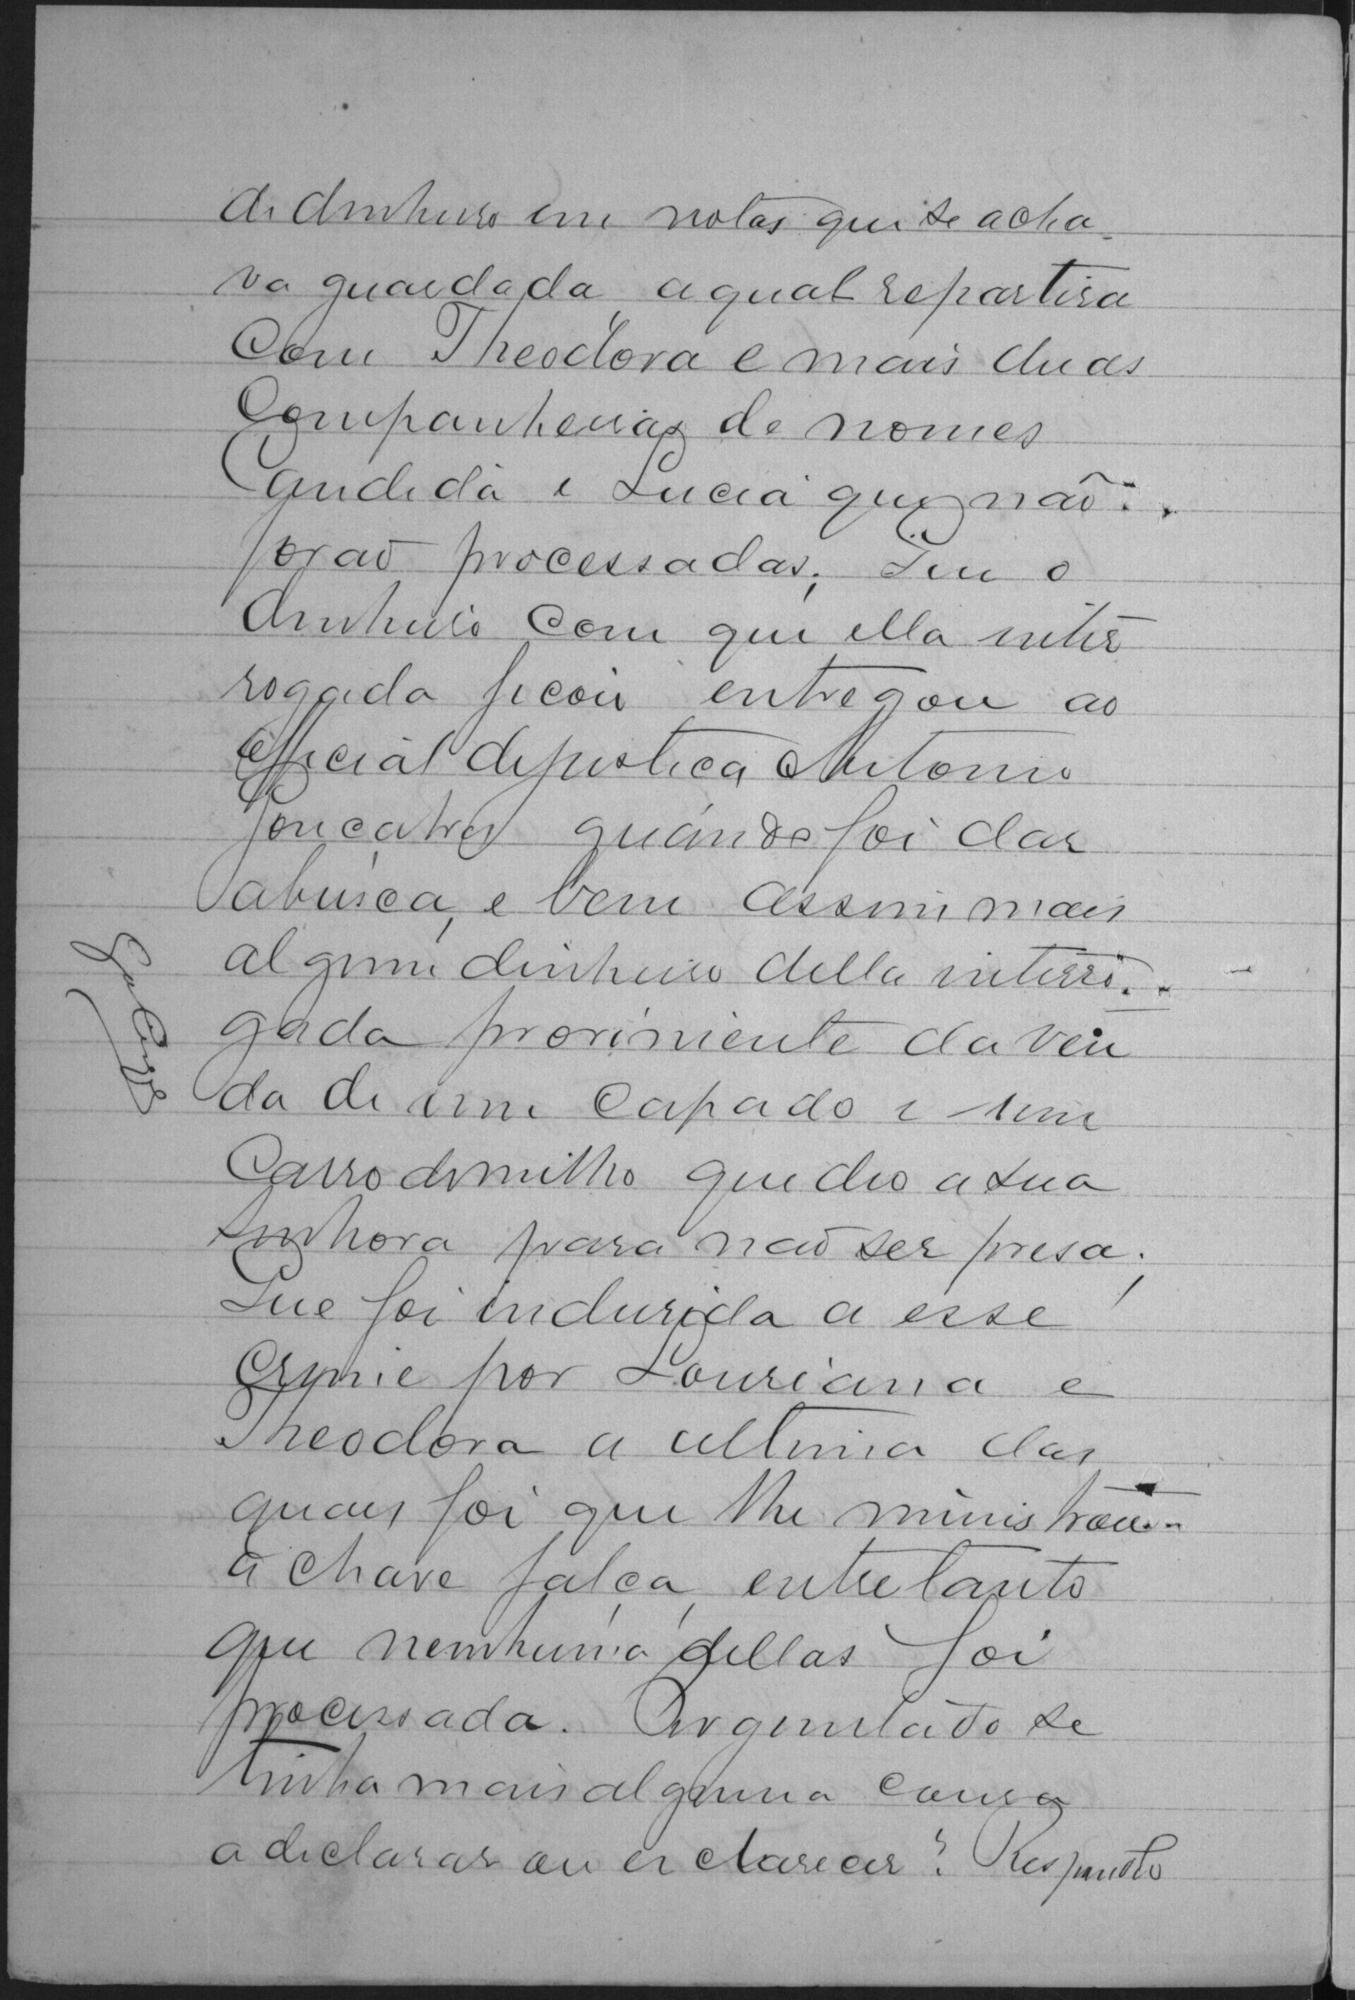 de dinheiro em notas que se acha-
va guardada, a qual repartira
com Theodora e mais duas
companheiras de nomes
Candida e Lucia que não
forão processadas; Que o
dinheiro com que ella inter
rogada ficou entregou ao
official de justiça Antonio
Gonçalves quando foi dar
a busca, e bem assim mais
algum dinheiro della interro-
gada proviniente da ven
da de um capado e um
carro de milho que deo a sua
senhora para não ser presa;
Que foi indusida a esse
crime por Louriana e
Theodora a ultima das
quaes foi que lhe ministrou
a chave falça, entretanto
que nemhuma dellas foi
processada. Perguntado se
tinha mais alguma cousa
a declarar ou esclarecer? Respondeo